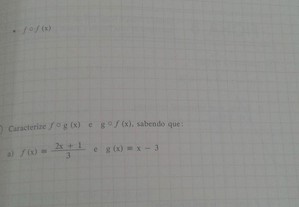 • f ○ f (x)
Caracterize f ○ g (x) e g ○ f (x), sabendo que:
a) f (x) = 2x + 1 / 3 e g (x) = x − 3